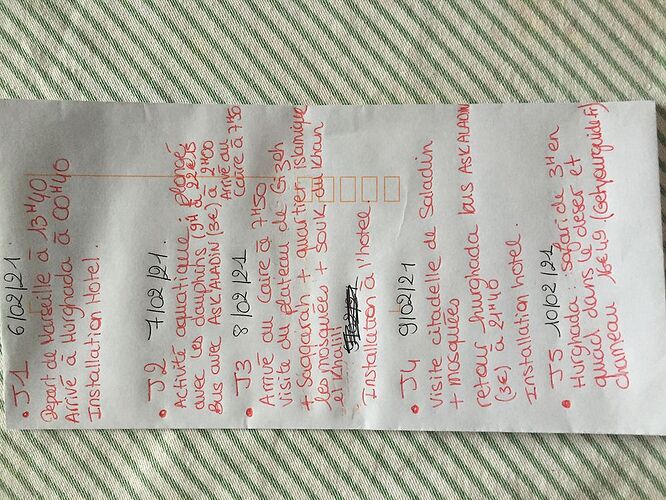 • J1 6/02/21
Depart de Marseille à 13H40
Arrivé à Hurghada à 00H40
Installation Hotel.
• J2 7/02/21
Activité aquatique : plongé
avec les dauphins (9H à
Bus avec ASKALADIN (3€) à
Arrivé au
caire à 7H50
• J3 8/02/21
Arrivé au Caire à 7H50
visite du plateau de Gizeh
+ Saqqarah + quartier islamique
les mosquées + souk
Installation à l'hotel
• J4 9/02/21
Visite citadelle de Saladin
+ mosquées
retour hurghada bus ASKALADIN
(3€) à 21H40
Installation hotel.
• J5 10/02/21
Hurghada : safari de 3H en
quad dans le deser et
chameau 16€49 (Getyourguide.Fr)